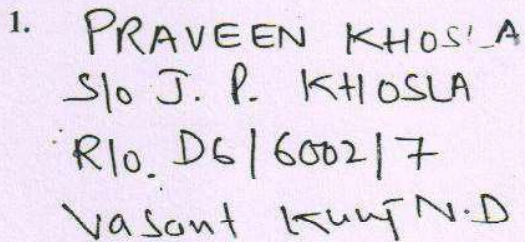 1. PRAVEEN KHOSLA
S/o J. P. KHOSLA
R/o. D6/6002/7
Vasant Kunj N.D